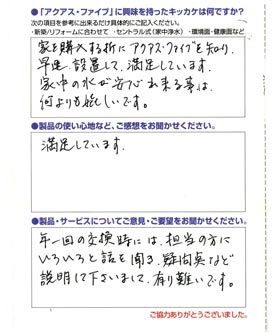 ●「アクアス・ファイブ」に興味を持ったキッカケは何ですか?
次の項目を参考に出来るだけ具体的にご記入ください。
・新築/リフォームに合わせて ・セントラル式(家中浄水) ・環境面・健康面など
家を購入する折にアクアス・ファイブを知り、
早速、設置して、満足しています。
家中の水が安心出来る事は、
何よりも嬉しいです。
●製品の使い心地など、ご感想をお聞かせください。
満足しています。
●製品・サービスについてご意見・ご要望をお聞かせください。
年一回の交換時には、担当の方に
いろいろと話を聞き、疑問点など
説明して下さいまして、有り難いです。
ご協力ありがとうございました。